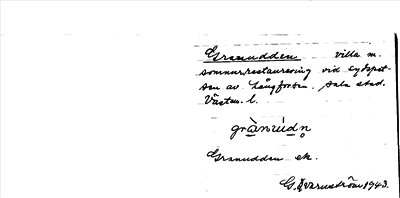 Granudden villa m.
sommarrestaurering vid sydspet-
sen av Långforsen. Sala stad.
Västm. l.
grànúdn̥
Granudden ek.
G. Qvarnström 1943.